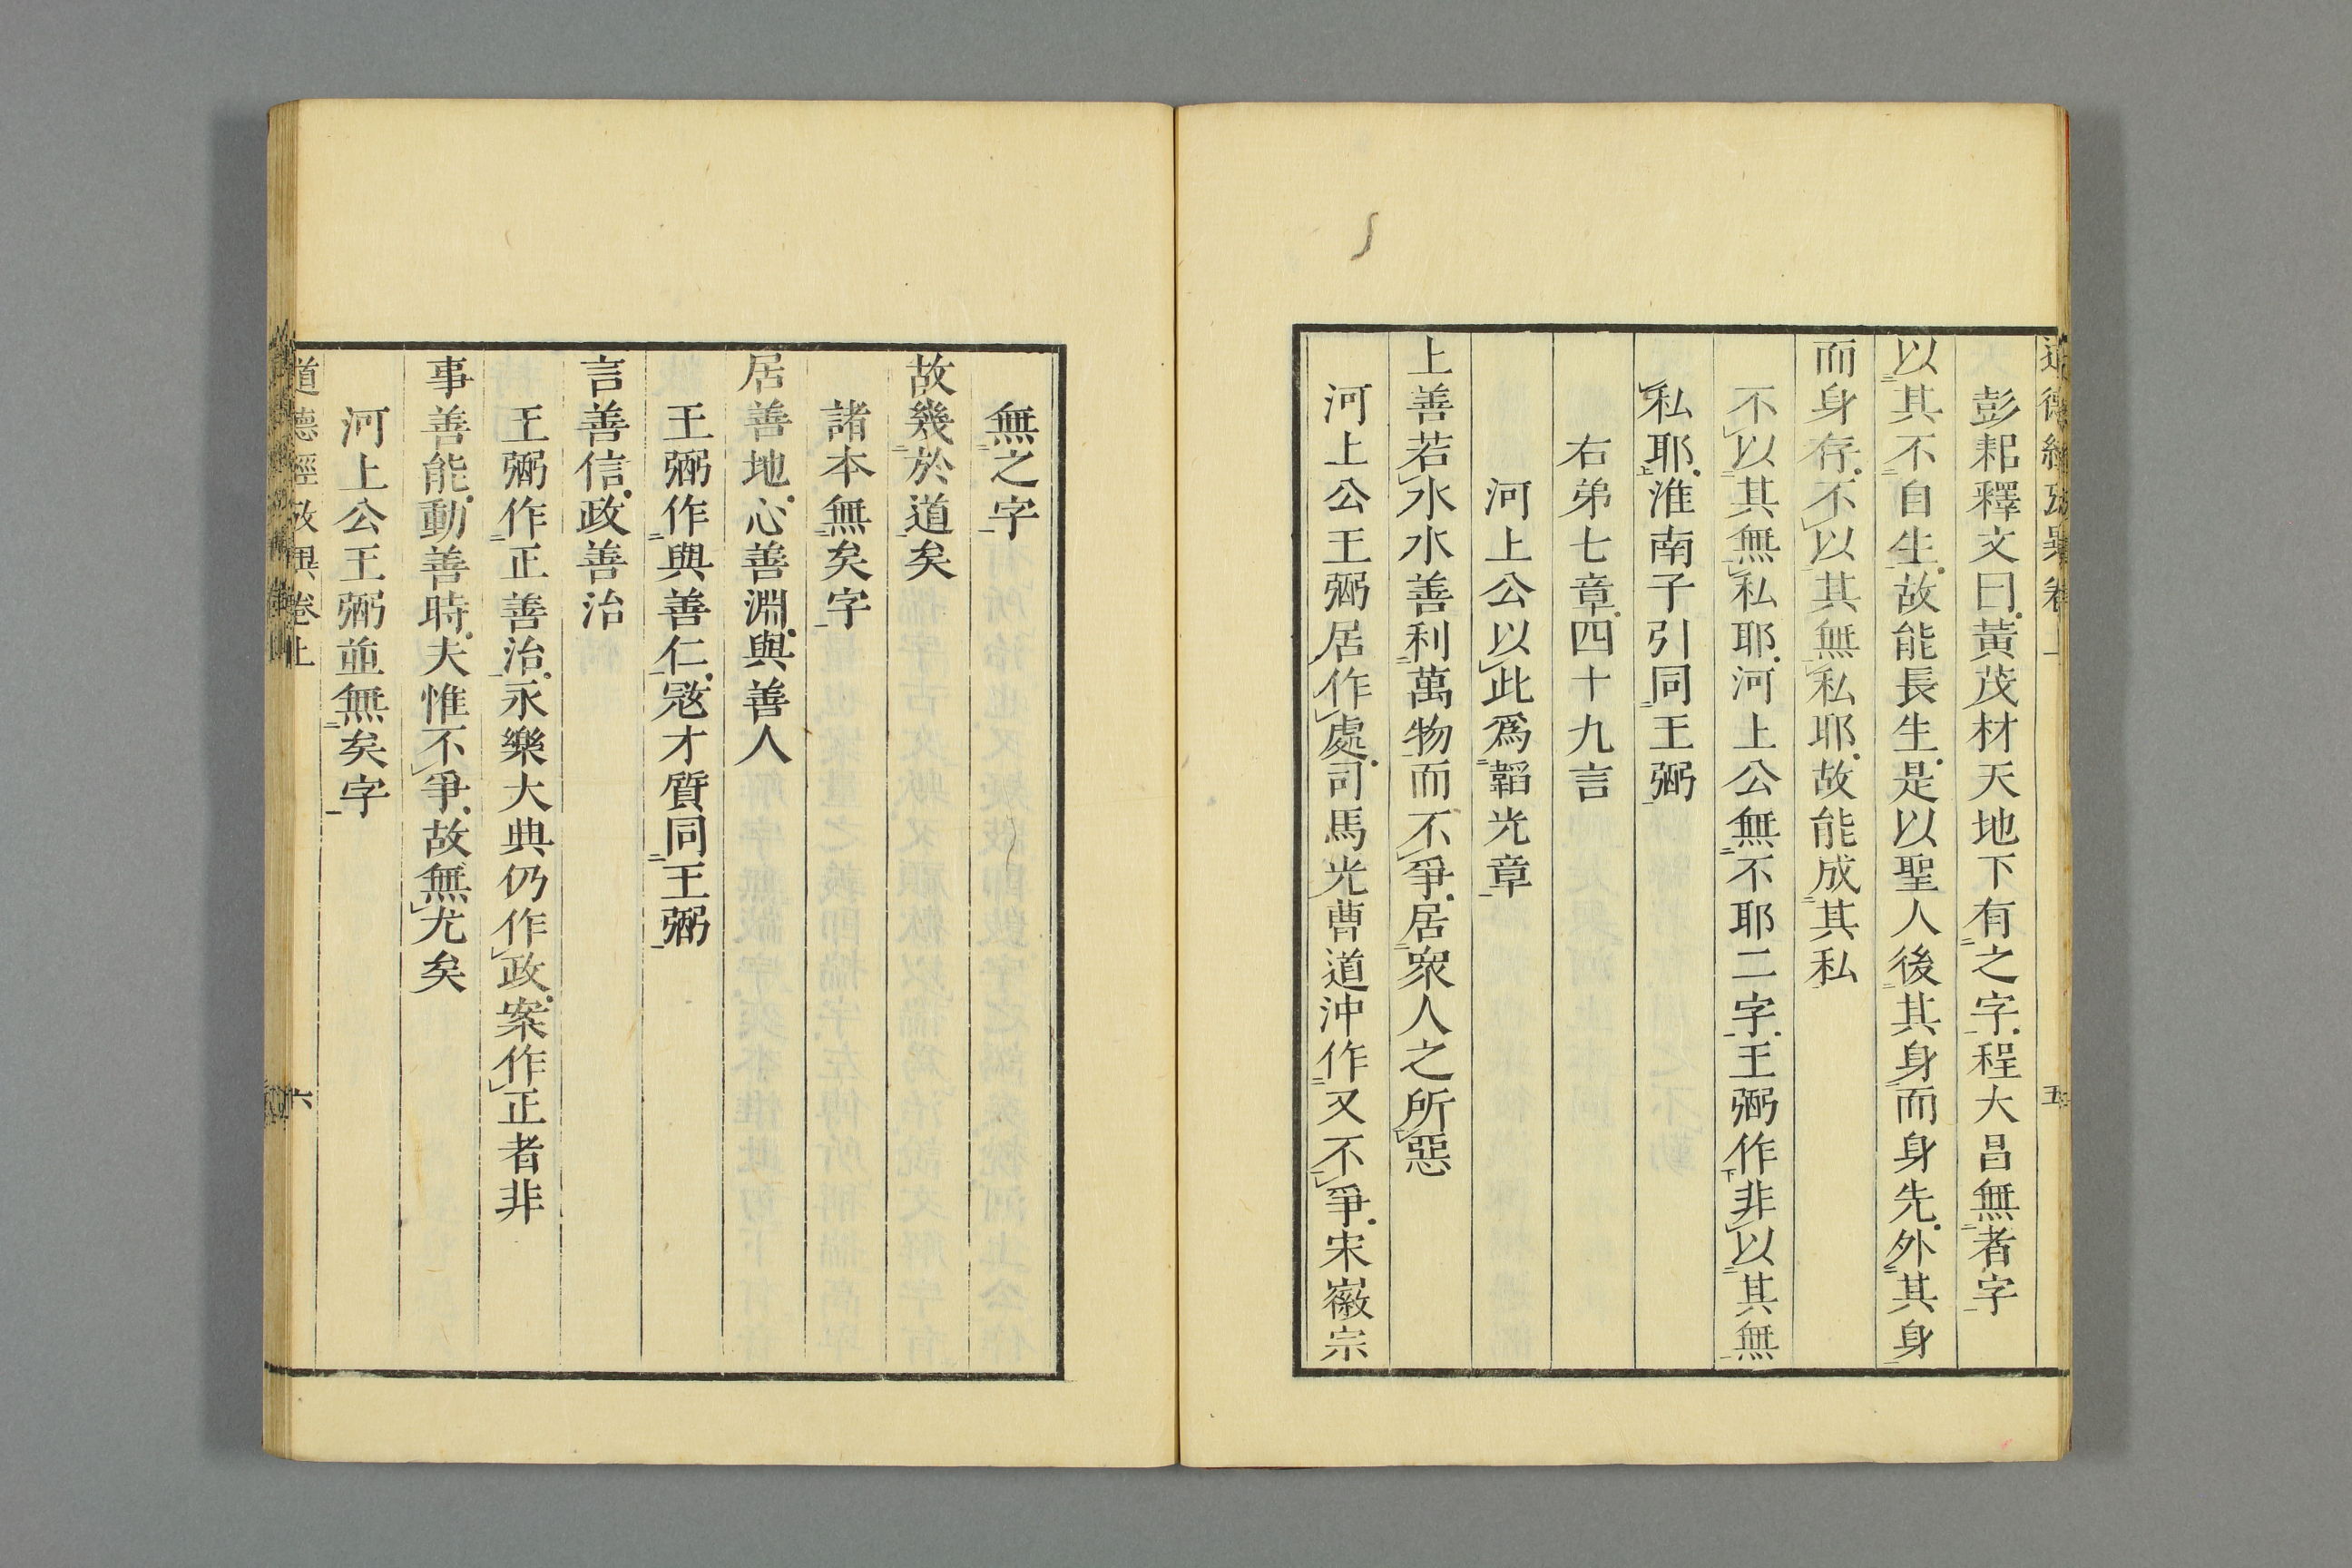 道德經攷異卷上 五
彭耜釋文曰黃茂材天地下有之字程大昌無者字
以其不自生故能長生是以聖人後其身而身先外其身
而身存不以其無私耶故能成其私
不以其無私耶河上公無不耶二字王弼作非以其無
私耶淮南子引同王弼
右弟七章四十九言
河上公以此爲韜光章
上善若水水善利萬物而不爭居衆人之所惡
河上公王弼居作處司馬光曹道沖作又不爭宋徽宗
無之字
故幾於道矣
諸本無矣字
居善地心善淵與善人
王弼作與善仁㓂才質同王弼
言善信政善治
王弼作正善治永樂大典仍作政案作正者非
事善能動善時夫惟不爭故無尤矣
河上公王弼並無矣字
道德經攷異卷上 六